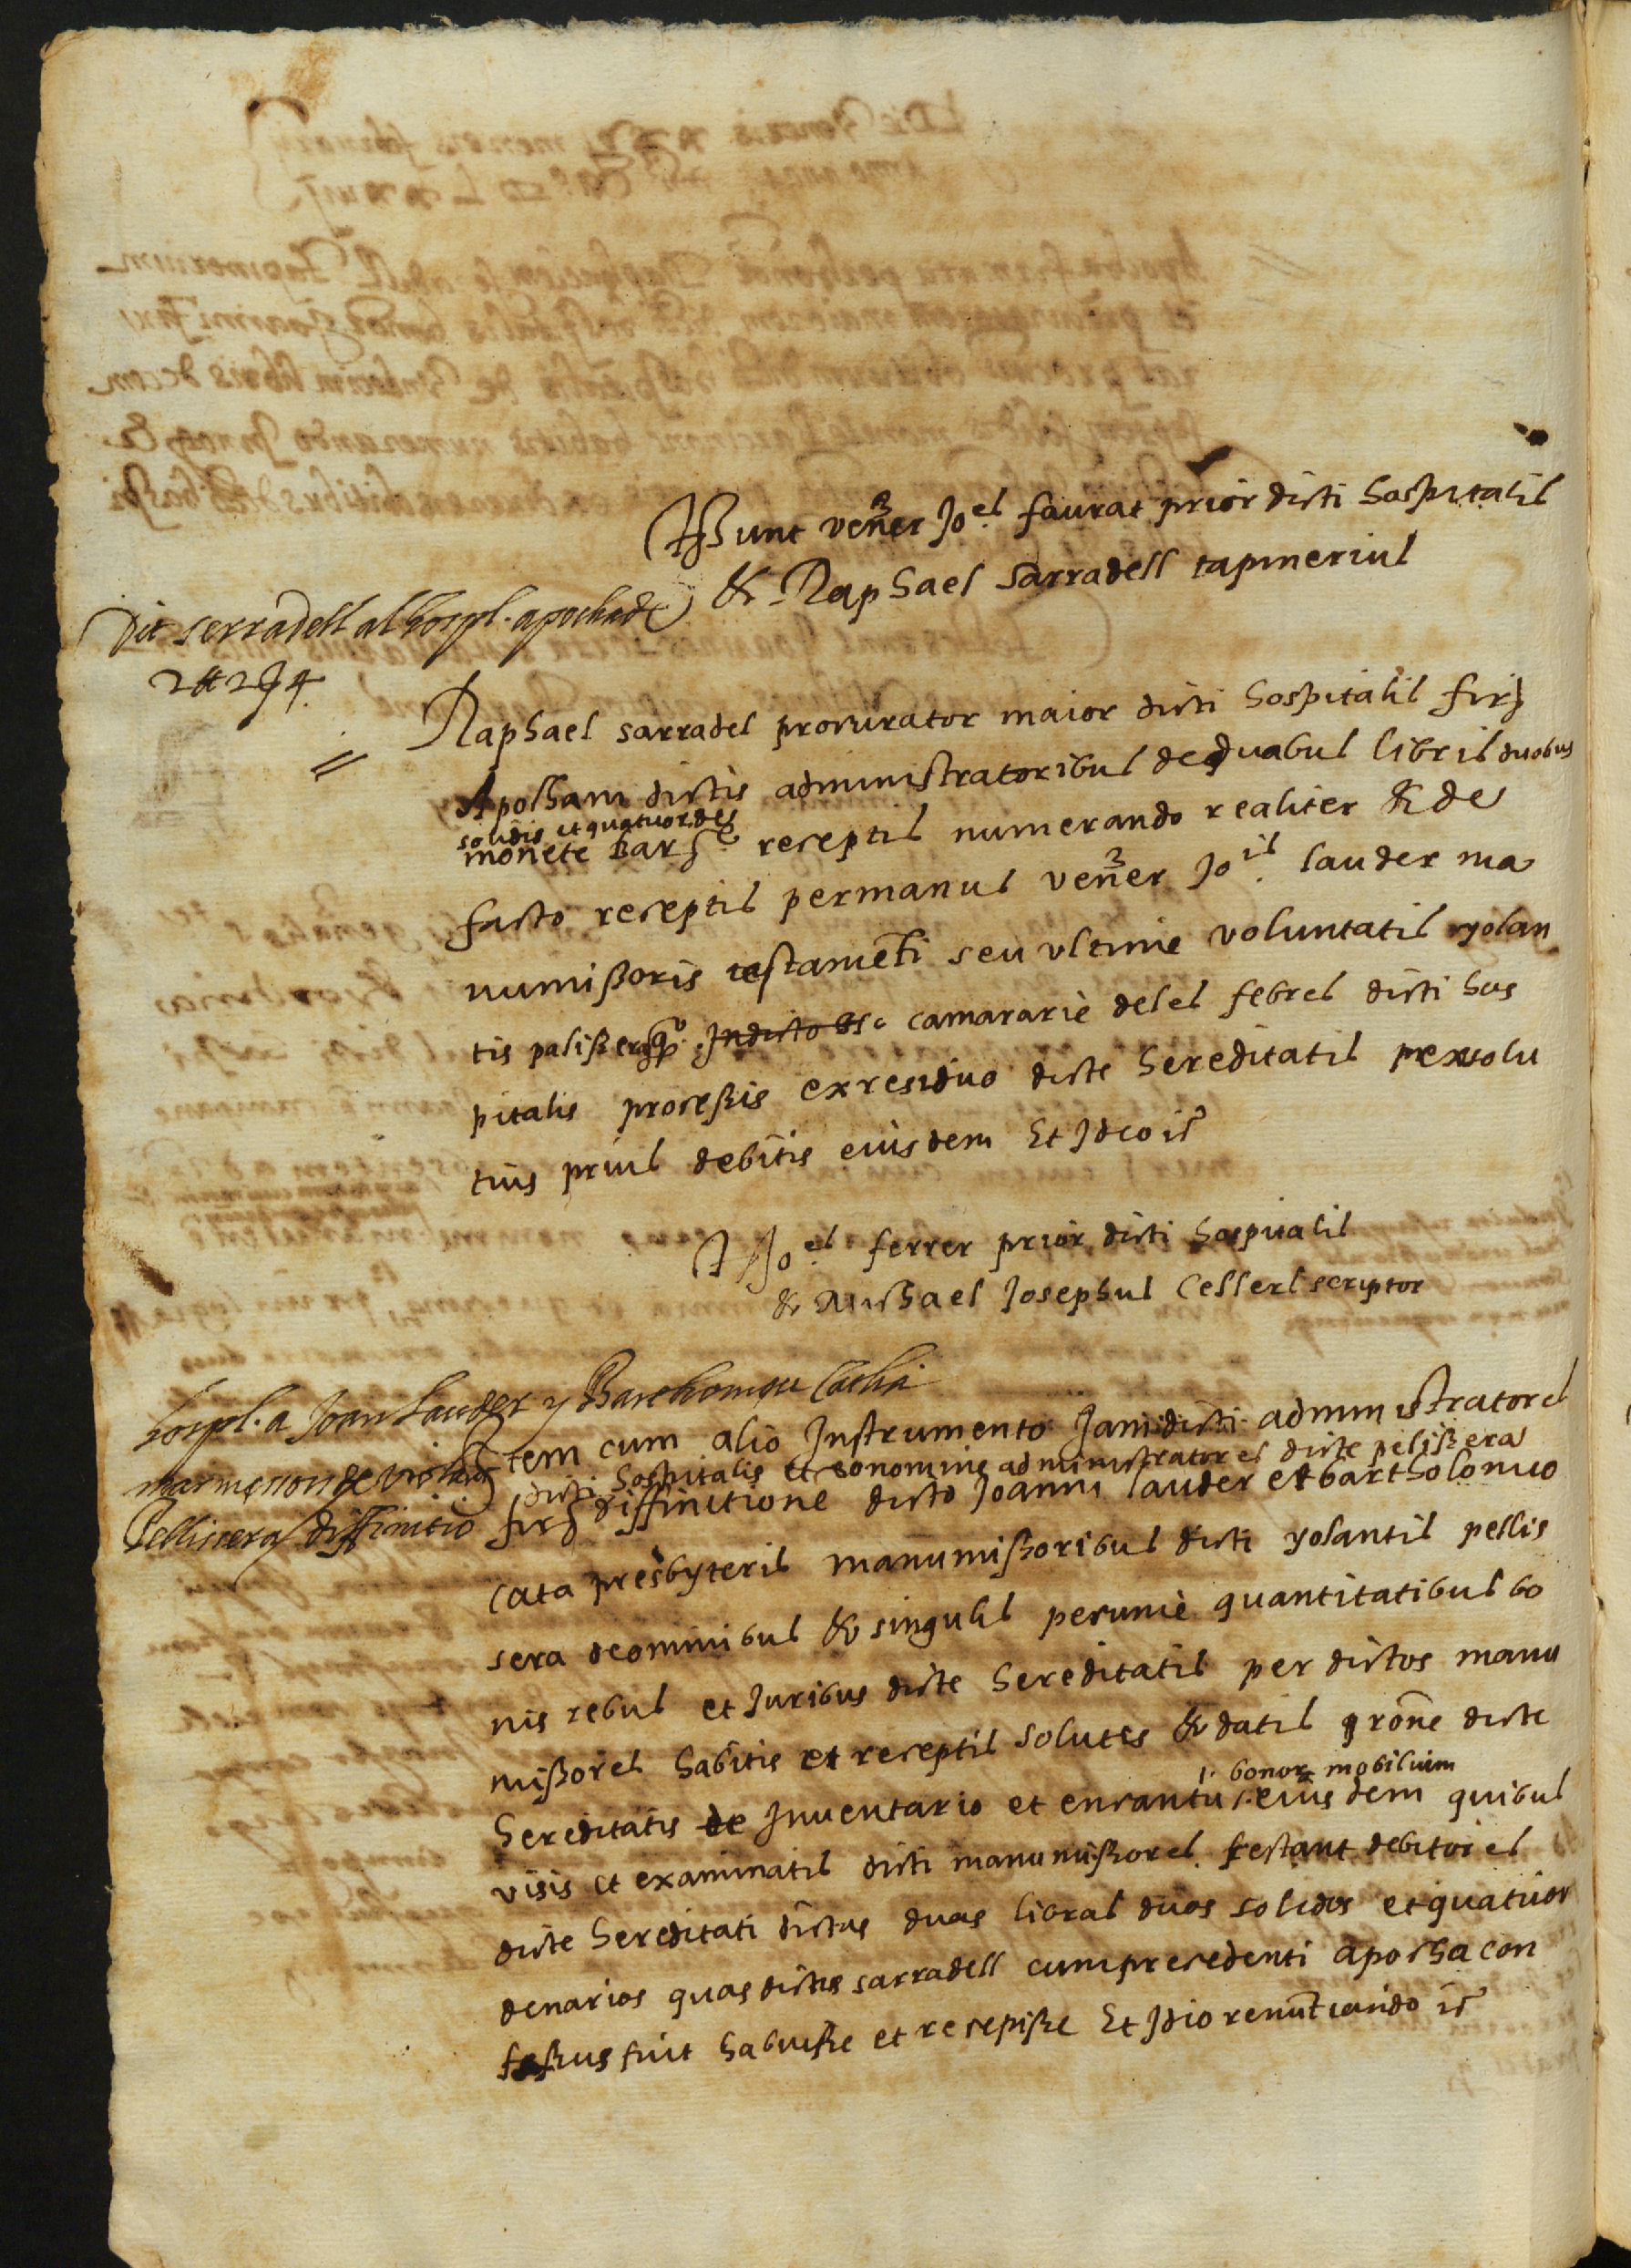 Tsunt vener Joel faurat prior dicti hospitalis
& Raphael Sarradell tapinerius
Dit serradell al hospl. apocha de
2 ₶ 2 s 4
Raphael sarradel procurator maior dicti hospitalis fir
Apocham dictis administratoribus de duabus libris duobus
solidis et quatuor des
monete Barne receptis numerando realiter & de
facto receptis per manus vener Jois lauder ma
numissoris testamenti seu ultime voluntatis yolan
tis palissera qo camararie deles febres dicti hos
pitalis processis ex residuo dicte hereditatis prexolu
tius prius debitis eiusdem Et Ideo ic
T Joel ferrer prior dicti hospitalis
& Michael Josephus Cellers scriptor
hospl. a Joan Lauder y Barthomeu Catha
marmessors de violant
Pellissera diffinitio
Item cum alio Instrumento Jamdicti administratores
dicti hospitalis et eo nomine administratores dicte pelissera
fir diffinitione dicto Joanni lauder et bartholomeo
Cata presbyteris manumissoribus dicti yolantis pellis
sera de omnibus & singulis pecunie quantitatibus bo
nis rebus et Juribus dicte hereditatis per dictos manu
missores habitis et receptis solutis & datis p rone dicte
hereditatis de Inventario et encantu eiusdem quibus
bonor mobilium
visis et examinatis dicti manumissores restant debitores
dicte hereditati dictas duas libras duos solidos et quatuor
denarios quas dictus sarradell cum precedenti apocha con
fessus fuit habuisse et recepisse Et Ideo renuntiando ic